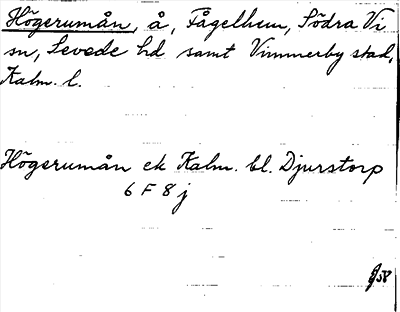 Högerumån, å, Fågelhem, Södra Vi
sn, Sevede hd samt Vimmerby stad,
Kalm. l.
Högerumån ek Kalm. bl. Djurstorp
6 F 8 j